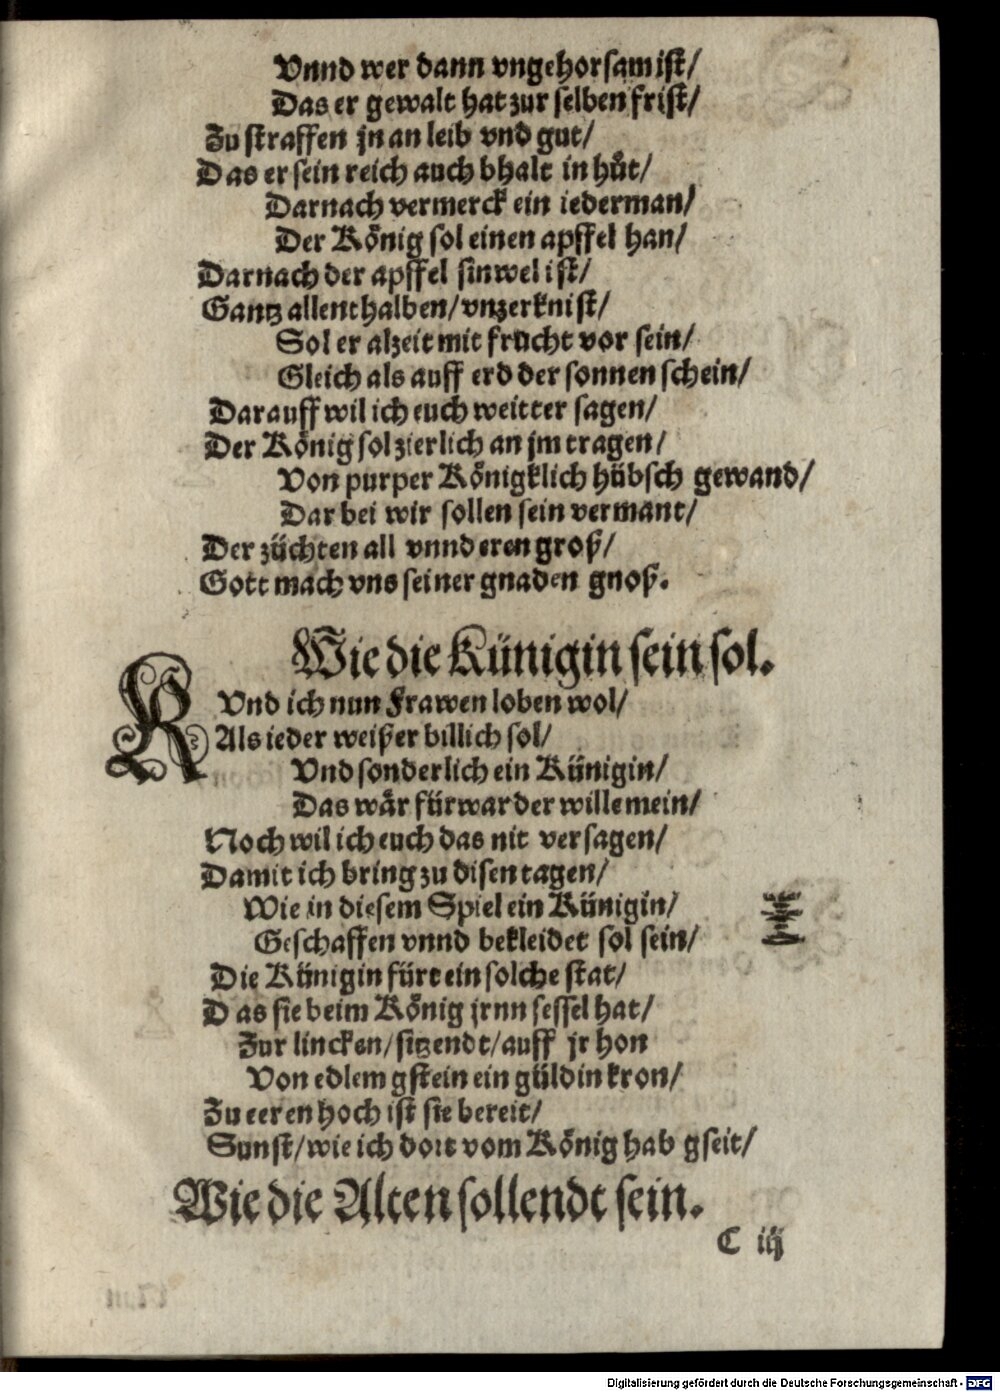 Vnnd wer dann vngehorsam ist/
Das er gewalt hat zur selben frist/
Zu straffen jn an leib vnd gut/
Das er sein reich auch bhalt in hůt/
Darnach vermerck ein iederman/
Der König sol einen apffel han/
Darnach der apffel sinwel ist/
Gantz allenthalben/vnzerknist/
Sol er alzeit mit frucht vor sein/
Gleich als auff erd der sonnen schein/
Darauff wil ich euch weitter sagen/
Der König sol zierlich an jm tragen/
Von purper Königklich hübsch gewand/
Dar bei wir sollen sein vermant/
Der züchten all vnnd eren groß/
Gott mach vns seiner gnaden gnoß.
Wie die Künigin sein sol.
KVnd ich nun Frawen loben wol/
Als ieder weißer billich sol/
Vnd sonderlich ein Künigin/
Das wär fürwar der wille mein/
Noch wil ich euch das nit versagen/
Damit ich bring zu disen tagen/
Wie in diesem Spiel ein Künigin/
Geschaffen vnnd bekleidet sol sein/
Die Künigin fürt ein solche stat/
Das sie beim König jrnn sessel hat/
Zur lincken/sitzendt/auff jr hon
Von edlem gstein ein güldin kron/
Zu eeren hoch ist sie bereit/
Sunst/wie ich dort vom König hab gseit/
Wie die Alten sollendt sein.
C iij
Digitalisierung gefördert durch die Deutsche Forschungsgemeinschaft - DFG